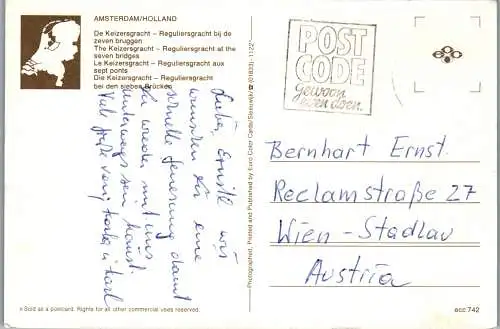 AMSTERDAM/HOLLAND
De Keizersgracht – Reguliersgracht bij de
zeven bruggen
The Keizersgracht – Reguliersgracht at the
seven bridges
Le Keizersgracht – Reguliersgracht aux
sept ponts
Die Keizersgracht – Reguliersgracht
bei den sieben Brücken
Lieber Ernstl wir
wünschen dir eine
schnelle Genesung damit
du wieder mit uns
unterwegs sein kannst.
Viele Grüße
u Karl
Sold as a postcard. Rights for all other commercial uses reserved.
Photographed, Printed and Published by Euro Color Cards/Sleeuwijk (01833) - 1122*
POST
CODE
Gewoon
even doen.
Bernhart Ernst.
Reclamstraße 27
Wien - Stadlau
Austria
ecc 742